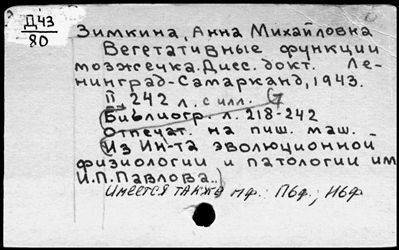 Д43
80
Зимкина, Анна Михайловна
Вегетативные функции
мозжечка. Дисс. докт. Ле-
нинград-Самарканд, 1943.
II, 242 л. с илл.
(Библиогр. л. 218-242
Отпечат. на пиш. маш.
(Из Ин-та эволюционной
физиологии и патологии им.
И.П.Павлова..)
Имеется также мф.: Пбф.; Нбф